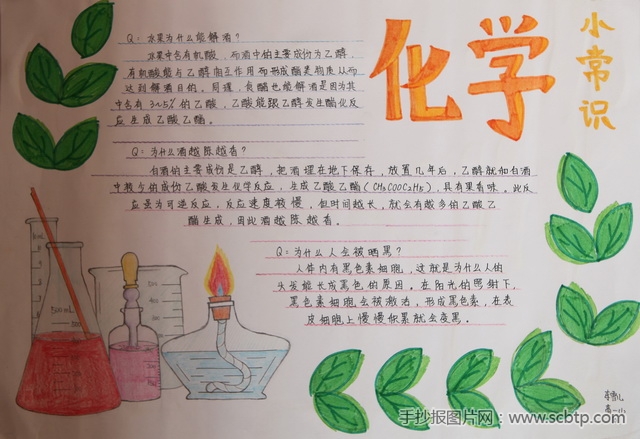 化学
小常识
Q: 水果为什么能解酒?
水果中含有机酸,而酒中的主要成份为乙醇,
有机酸能与乙醇相互作用而形成酯类物质从而
达到解酒目的。同理,食醋也能解酒是因为其
中含有3~5%的乙酸,乙酸能跟乙醇发生酯化反
应生成乙酸乙酯。
Q: 为什么酒越陈越香?
白酒的主要成份是乙醇,把酒埋在地下保存,放置几年后,乙醇就和白酒
中较少的成份乙酸发生化学反应,生成乙酸乙酯(CH3COOC2H5),具有果香味。此反
应虽为可逆反应,反应速度较慢,但时间越长,就会有越多的乙酸乙
酯生成,因此酒越陈越香。
Q: 为什么人会被晒黑?
人体内有黑色素细胞,这就是为什么人的
头发能长成黑色的原因。在阳光的照射下,
黑色素细胞会被激活,形成黑色素,在表
皮细胞上慢慢积累就会变黑。
500mL
手抄报图片网:www.scbtp.com